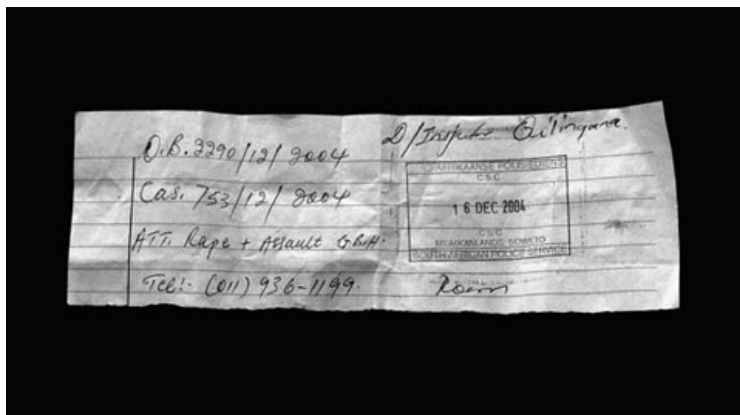 O.B. 2290/12/2004
Cas. 753/12/2004
ATT. Rape + Assault G.B.H.
Tel:- (011) 936-1199.
D/Inspector
SUID-AFRIKAANSE POLISIEDIENS
C S C
16 DEC 2004
C S C
MEADOWLANDS, SOWETO
SOUTH AFRICAN POLICE SERVICE
Room